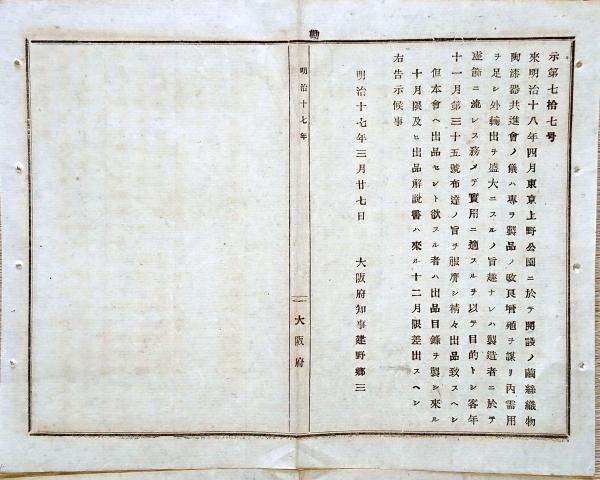 示第七拾七号
來明治十八年四月東京上野公園ニ於テ開設ノ繭絲織物
陶漆器共進會ノ儀ハ專ラ製品ノ改良增殖ヲ謀リ內需用
ヲ足シ外輸出ヲ盛大ニスルノ旨趣ナレハ製造者ニ於テ
虛飾ニ流レス務メテ實用ニ適スルヲ以テ目的トシ客年
十一月第三十五號布達ノ旨ヲ服膺シ精々出品致スヘシ
但本會ヘ出品セント欲スル者ハ出品目錄ヲ製シ來ル
十月限及ヒ出品解說書ハ來ル十二月限差出スヘシ
右告示候事
明治十七年三月廿七日
大阪府知事建野鄉三
勸
明治十七年
大阪府